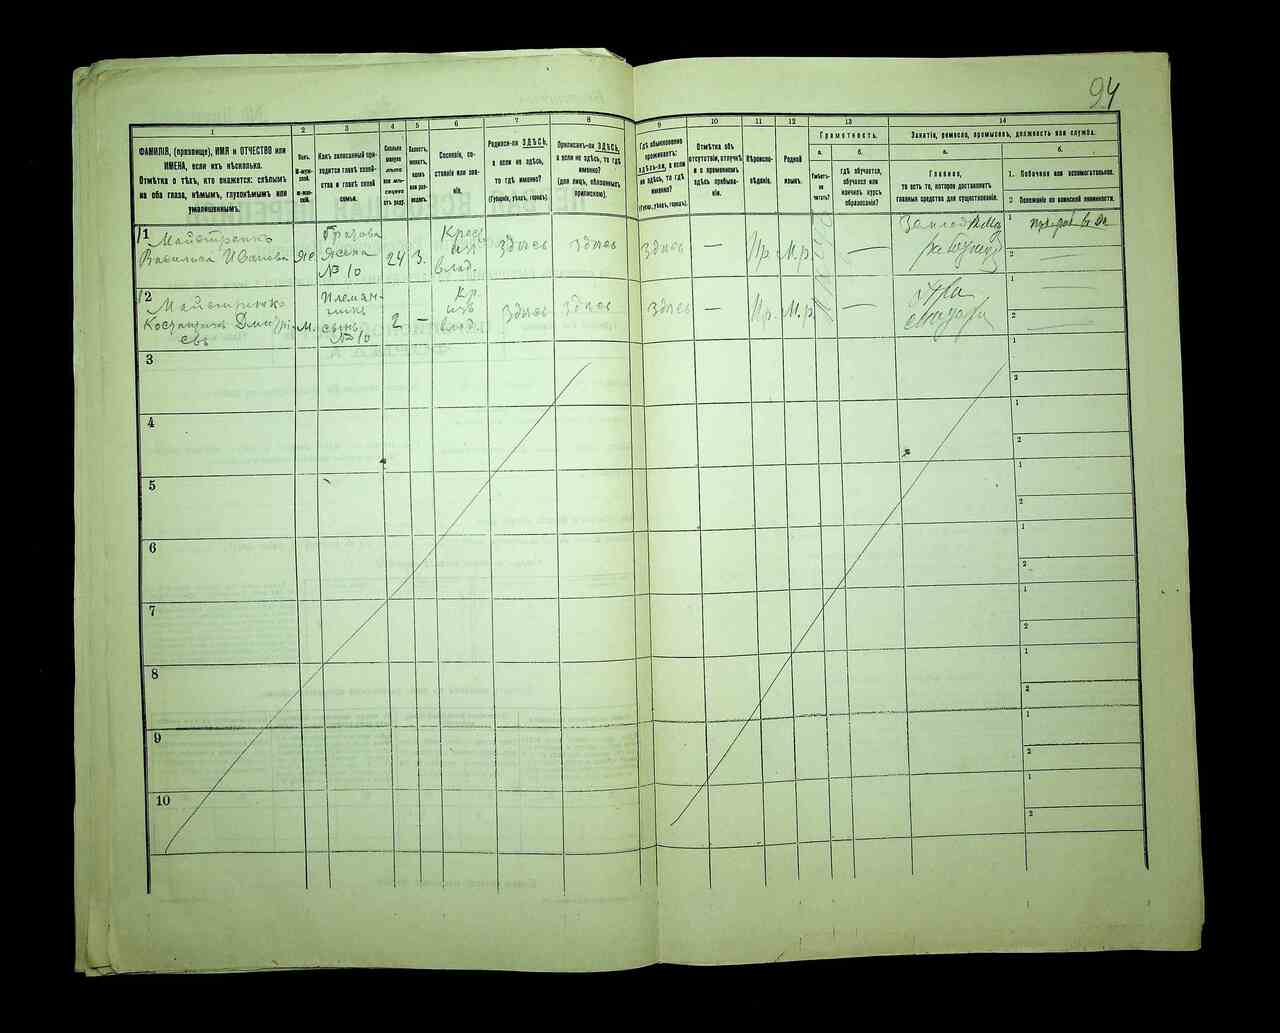 94
1
2
3
4
5
6
7
8
9
10
11
12
13
14
ФАМИЛІЯ, (прозвище), ИМЯ и ОТЧЕСТВО или
ИМЕНА, если ихъ нѣсколько.
Отмѣтка о тѣхъ, кто окажется: слѣпымъ
на оба глаза, нѣмымъ, глухонѣмымъ или
умалишеннымъ.
Полъ.
М-муж-
ской.
Ж-жен-
скій.
Какъ записанный при-
ходится главѣ хозяй-
ства и главѣ своей
семьи.
Сколько
минуло
лѣтъ
или мѣ-
сяцевъ
отъ роду.
Холостъ,
женатъ,
вдовъ
или раз-
веденъ.
Сословіе, со-
стояніе или зва-
ніе.
Родился-ли ЗДѢСЬ,
а если не здѣсь,
то гдѣ именно?
(Губернія, уѣздъ, городъ).
Приписанъ-ли ЗДѢСЬ,
а если не здѣсь, то гдѣ
именно?
(для лицъ, обязанныхъ
припискою).
Гдѣ обыкновенно
проживаетъ:
здѣсь-ли, а если
не здѣсь, то гдѣ
именно?
(Губерн., уѣздъ, городъ).
Отмѣтка объ
отсутствіи, отлучкѣ
и о временномъ
здѣсь пребыва-
ніи.
Вѣроиспо-
вѣданіе.
Родной
языкъ.
Грамотность.
а.
Умѣетъ-
ли
читать?
б.
Гдѣ обучается,
обучался или
кончилъ курсъ
образованія?
Занятіе, ремесло, промыселъ, должность или служба.
а.
Главное,
то есть то, которое доставляетъ
главныя средства для существованія.
б.
1. Побочное или вспомогательное.
2. Положеніе по воинской повинности.
1
Майстренко
Василиса Иванова
Же
жена
№ 10
24
З.
Крест
изъ
влад.
Здѣсь
Здѣсь
Здѣсь
—
Пр.
М.р.
—
1
2
2
Майстренко
Костантинъ Дмитрі-
евъ
М.
Племян-
никъ
сынъ
№ 10
2
—
Кр.
изъ
влад.
Здѣсь
Здѣсь
Здѣсь
—
Пр.
М.р.
—
при
1
2
3
1
2
4
1
2
5
1
2
6
1
2
7
1
2
8
1
2
9
1
2
10
1
2